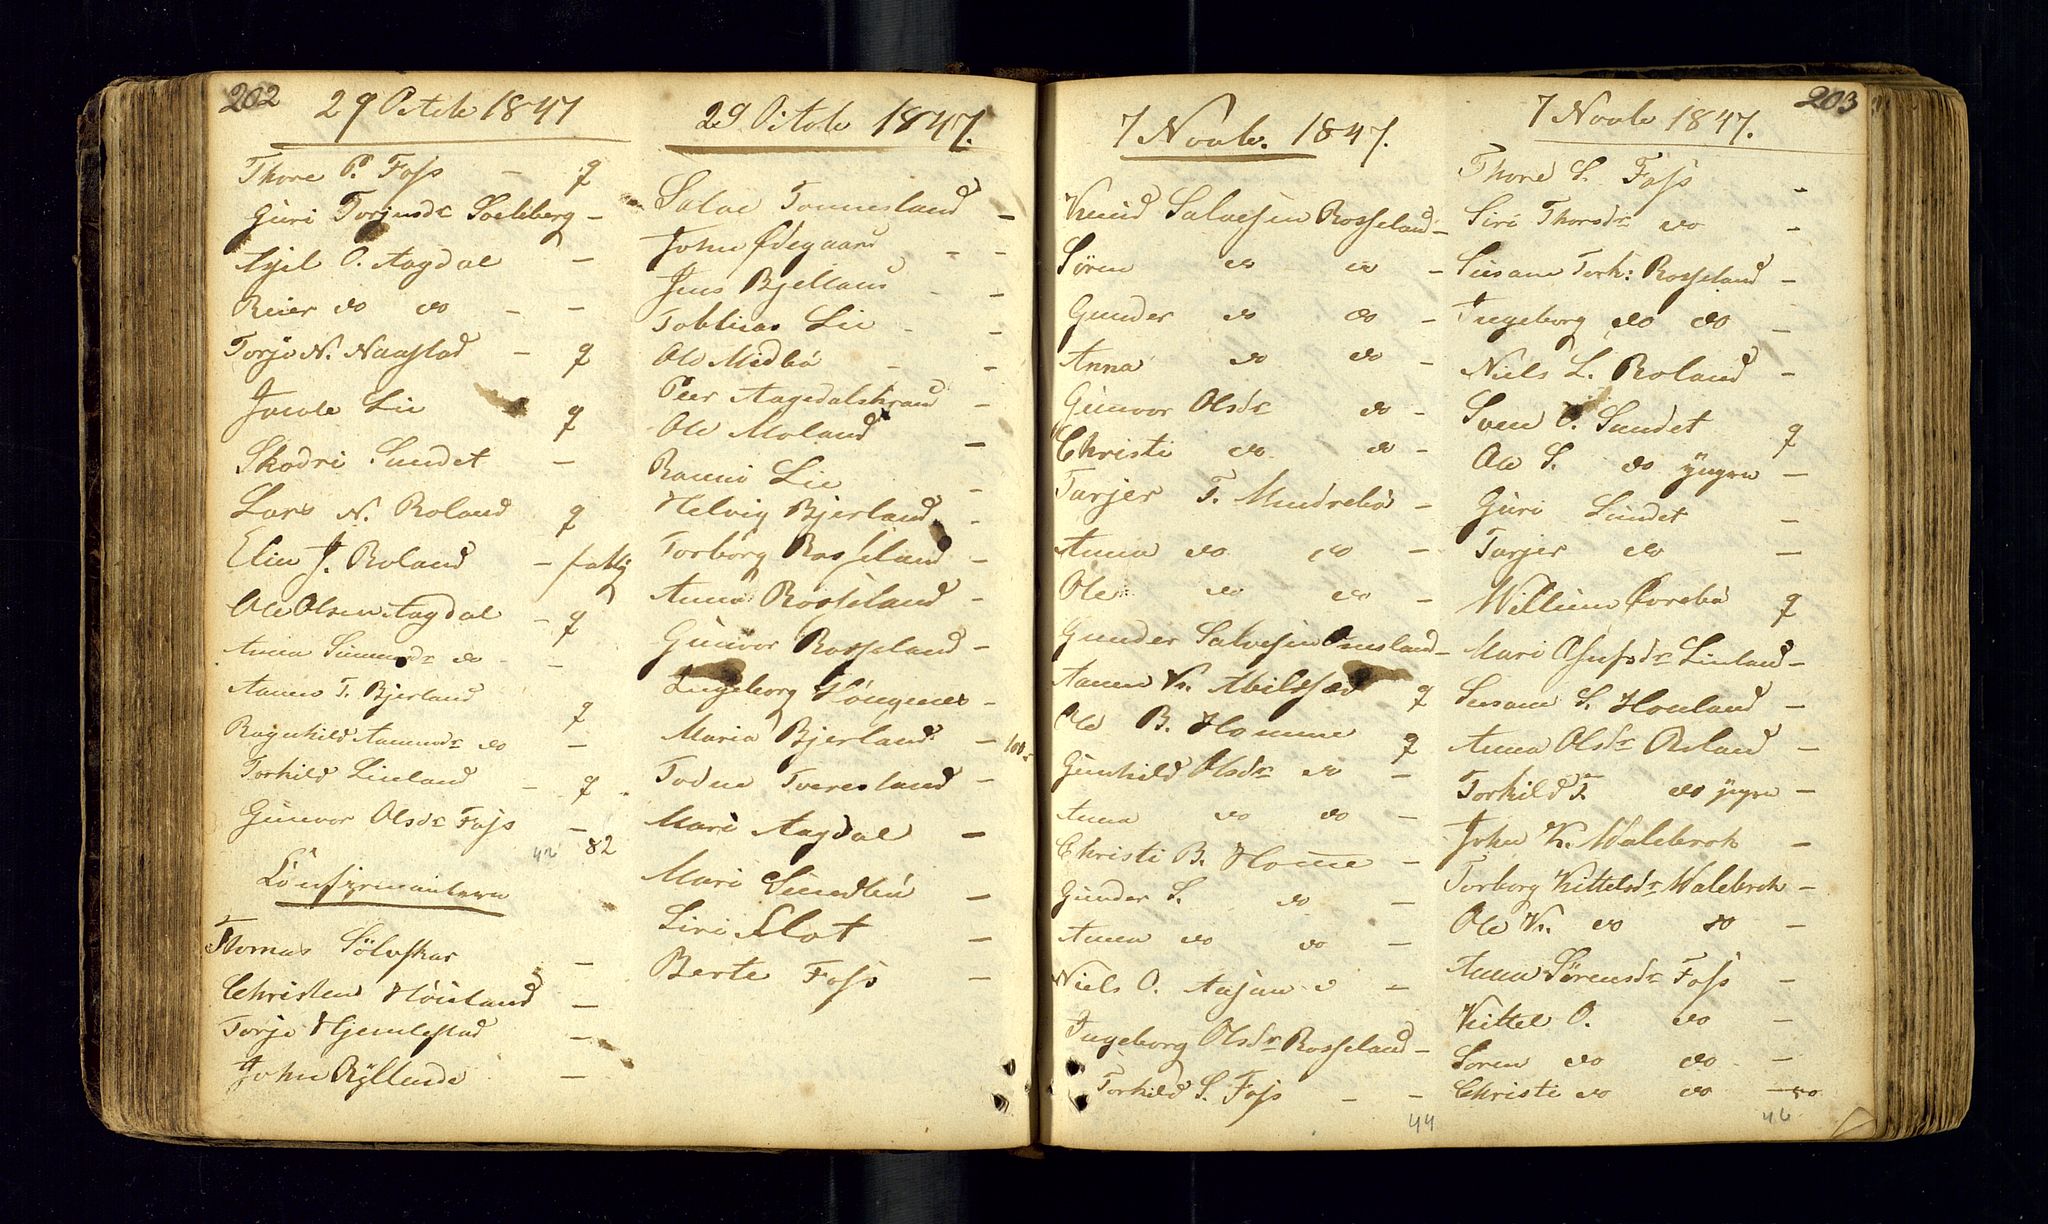 202
29 Octob 1847
Thore P. Foss - g
Guri Torjusdr Soelberg -
Axel O. Aagdal -
Reier do do - -
Torje N. Naastad - g
Jacob Lie g
Skodri Sundet -
Lars N. Roland g
Elen J. Roland - fattig
Ole Olsen Aagdal - g
Anna Simonsdr do - -
Aanen T. Bjerland g
Ragnhild Aanensdr do -
Torkild Linland - g
Gunvor Olsdr Foss -
42 82
Confirmanterne
Thomas Sölvskar -
Christen Höiland -
Torje Hjemlestad -
John Röllende -
29 Octob 1847.
Salve Tonnesland -
John Ødegaard - -
Jens Bjelland - -
Tobbias Lie - -
Ole Midbö - -
Peer Aagedalstrand -
Ole Moland -
Ranni Lie -
Helvig Bjerland -
Torborg Rosseland -
Anna Rosseland -
Gunvor Rosseland -
Ingeborg Höngenes -
Maria Bjerland - 100
Todne Tveresland -
Mari Aagdal -
Mari Sundbö -
Siri Slot -
Berte Foss -
7 Novb. 1847.
Knud Salvesen Rosseland -
Sören do do -
Gunder do do -
Anna do do -
Gunvor Olsdr do -
Christi do do -
Tarjer T. Mundrebö -
Anna do do -
Ole do do -
Gunder Salvesen Omesland -
Aanen K. Abilsnæs g
Ole B. Homme g
Gunhild Olsdr do -
Anna do do -
Christi B. Home -
Gunder S. do -
Anna do do -
Niels O. -
Ingeborg Olsdr Rosseland -
Torkild S. Foss - -
44
203
7 Novb 1847.
Thore S. Foss -
Siri Thorsdr do -
Susane Tork: Rosseland -
Ingeborg do do -
Niels L. Roland -
Sven O. Sundet g
Ole S. do yngre -
Guri Sundet -
Tarjer do -
Willum Øvrebö g
Mari Osufsdr Linland -
Susane S. Houland -
Anna Olsdr Roland -
Torkild T. do yngre -
John K. Walebrok -
Torborg Kittelsdr Walebrok -
Ole K. do do -
Anna Sörensdr Foss -
Kittel O. do -
Sören do do -
Christi do do - 80
46